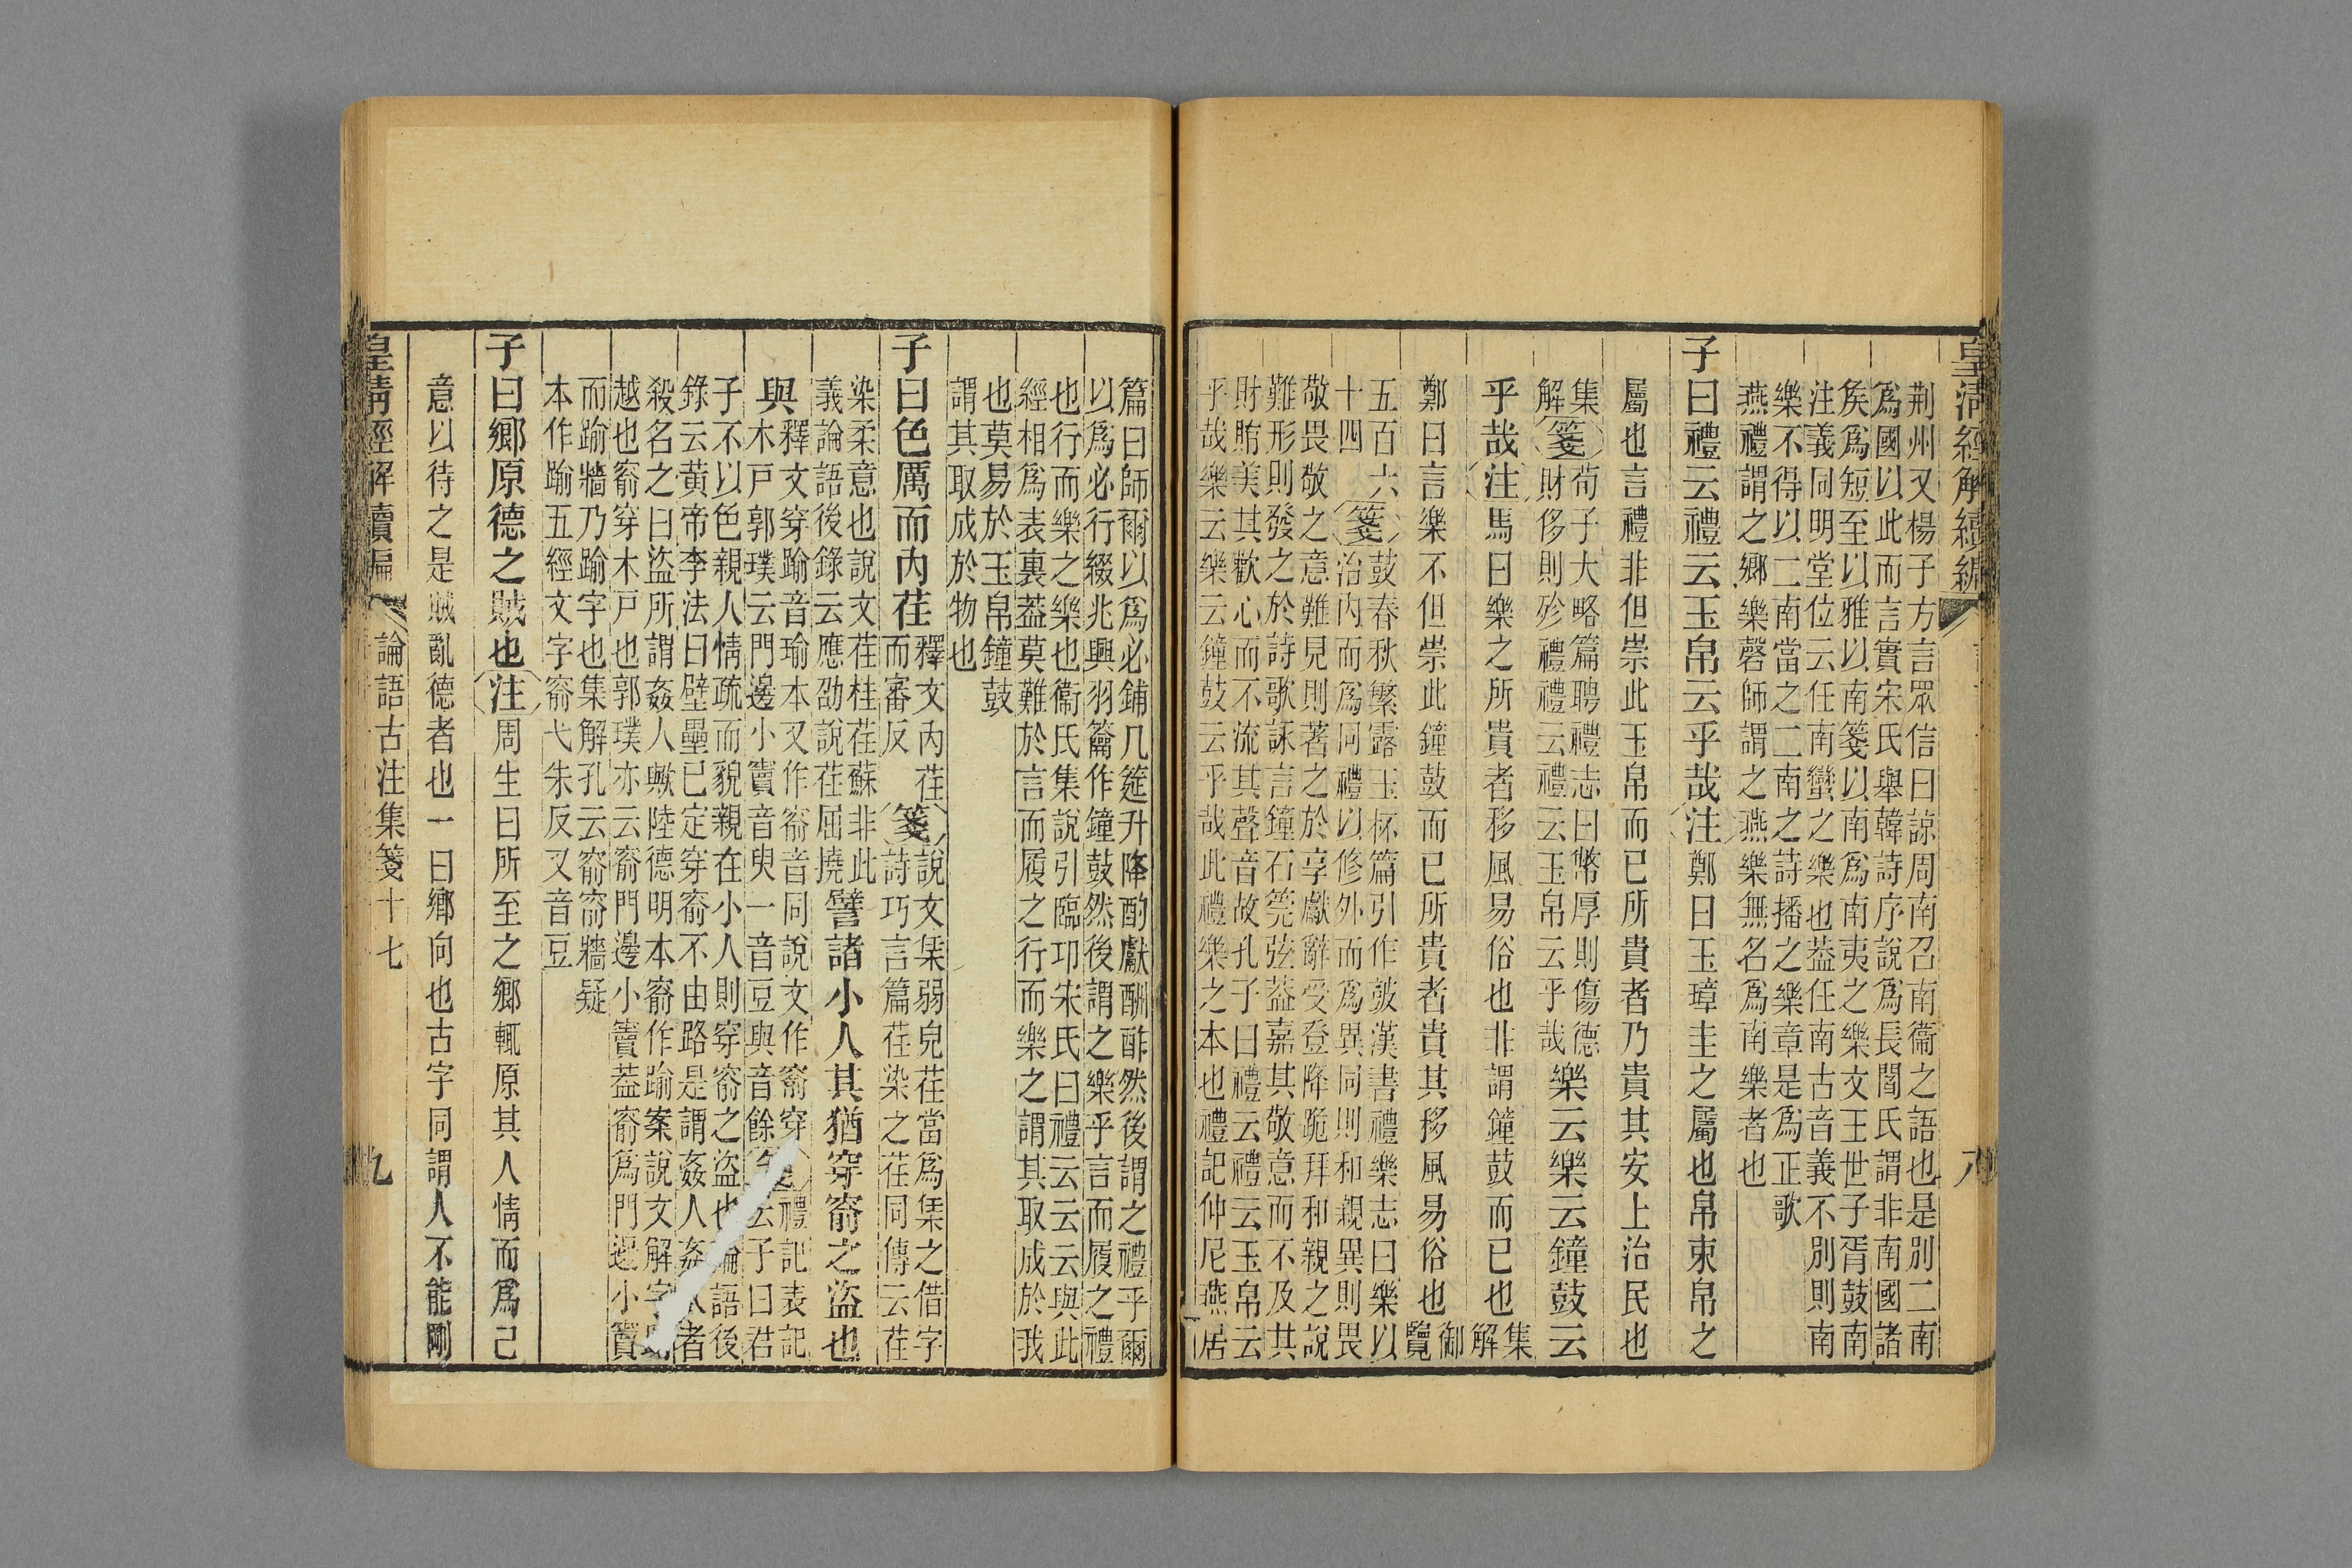 皇清經解續編
八
荆州又楊子方言眾信曰諒周南召南衞之語也是別二南
爲國以此而言實宋氏舉韓詩序說爲長閻氏謂非南國諸
矦爲短至以雅以南箋以南爲南夷之樂文王世子胥鼓南
注義同明堂位云任南蠻之樂也葢任南古音義不別則南
樂不得以二南當之二南之詩播之樂章是爲正歌
燕禮謂之鄉樂磬師謂之燕樂無名爲南樂者也
子曰禮云禮云玉帛云乎哉注鄭曰玉璋圭之屬也帛束帛之
屬也言禮非但崇此玉帛而已所貴者乃貴其安上治民也
集
解箋荀子大略篇聘禮志曰幣厚則傷德
財侈則殄禮禮云禮云玉帛云乎哉樂云樂云鐘鼓云
乎哉注馬曰樂之所貴者移風易俗也非謂鐘鼓而已也集
解
鄭曰言樂不但崇此鐘鼓而已所貴者貴其移風易俗也御
覽
五百六
十四箋鼓春秋繁露玉杯篇引作皷漢書禮樂志曰樂以
治內而爲同禮以修外而爲異同則和親異則畏
敬畏敬之意難見則著之於享獻辭受登降跪拜和親之說
難形則發之於詩歌詠言鐘石筦弦葢嘉其敬意而不及其
財賄美其歡心而不流其聲音故孔子曰禮云禮云玉帛云
乎哉樂云樂云鐘鼓云乎哉此禮樂之本也禮記仲尼燕居
篇曰師爾以爲必鋪几筵升降酌獻酬酢然後謂之禮乎爾
以爲必行綴兆興羽籥作鐘鼓然後謂之樂乎言而履之禮
也行而樂之樂也衞氏集說引臨卭宋氏曰禮云云云與此
經相爲表裏葢莫難於言而履之行而樂之謂其取成於我
也莫易於玉帛鐘鼓
謂其取成於物也
子曰色厲而內荏釋文內荏
而審反箋說文栠弱皃荏當爲栠之借字
詩巧言篇荏染之荏同傳云荏
染柔意也說文荏桂荏蘇非此
義論語後錄云應劭說荏屈撓譬諸小人其猶穿窬之盜也
與釋文穿踰音瑜本又作窬音同說文作窬穿
木戸郭璞云門邊小竇音臾一音豆與音餘禮記表記
云子曰君
子不以色親人情疏而貌親在小人則穿窬之盜也論語後
錄云黄帝李法曰壁壘已定穿窬不由路是謂姦人姦人者
殺名之曰盜所謂姦人歟陸德明本窬作踰案說文解字踰
越也窬穿木戸也郭璞亦云窬門邊小竇葢窬爲門邊小竇
而踰牆乃踰字也集解孔云窬窬牆疑
本作踰五經文字窬弋朱反又音豆
子曰鄉原德之賊也注周生曰所至之鄉輒原其人情而爲己
意以待之是賊亂德者也一曰鄉向也古字同謂人不能剛
皇清經解續編
論語古注集箋十七
九